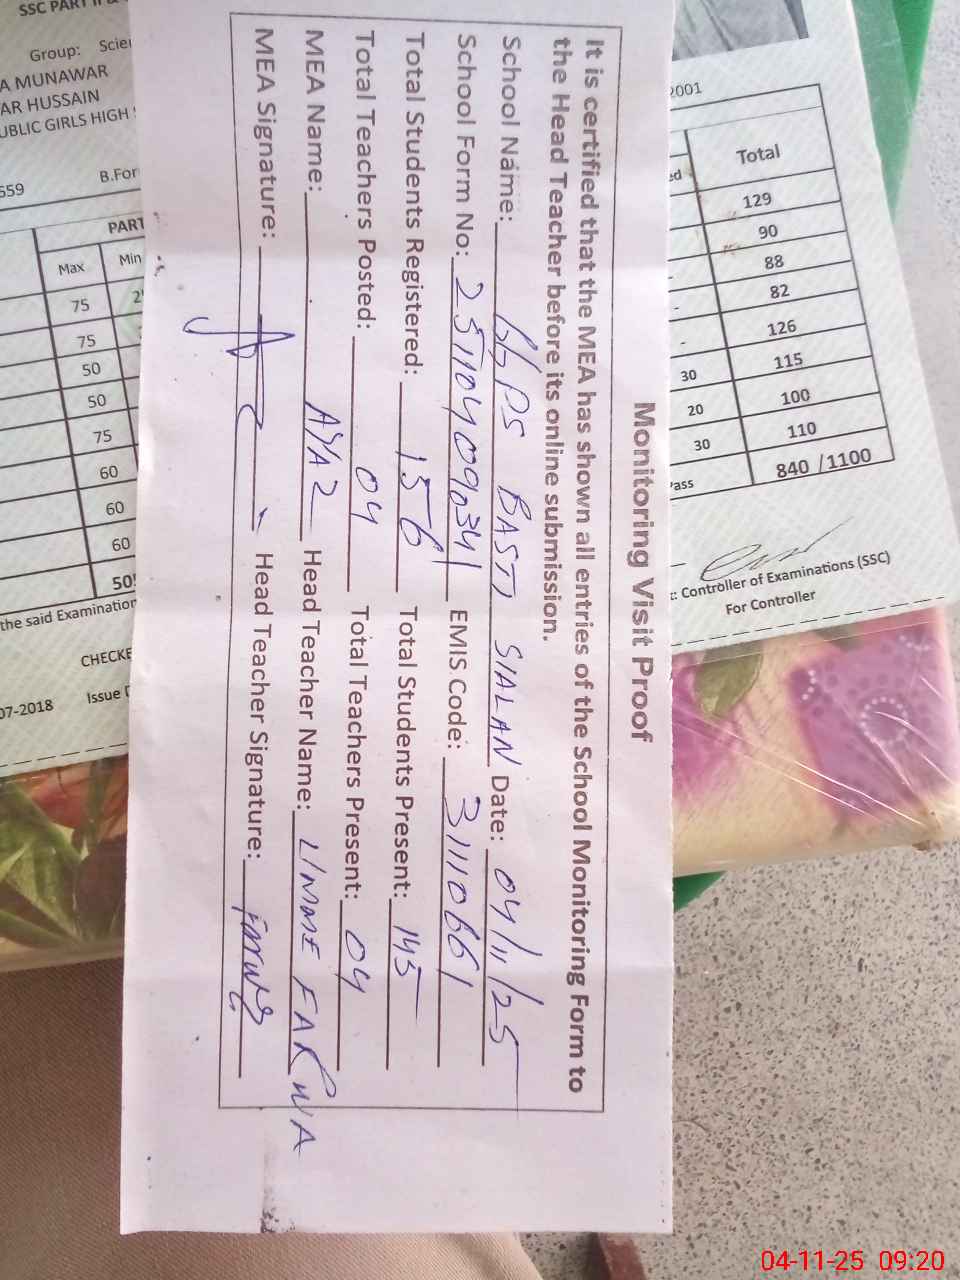 Monitoring Visit Proof
It is certified that the MEA has shown all entries of the School Monitoring Form to
the Head Teacher before its online submission.
School Name: GGPS BASTI SIALAN Date: 04/11/25
School Form No: 251104090341 EMIS Code: 31110661
Total Students Registered: 156 Total Students Present: 145
Total Teachers Posted: 04 Total Teachers Present: 04
MEA Name: AYAZ Head Teacher Name: UMME FARWA
MEA Signature: Head Teacher Signature: Farwa
SSC PART II &
Group: Scien
A MUNAWAR
AR HUSSAIN
UBLIC GIRLS HIGH
559 B.For
PART
Max Min
75 2
75
50
50
75
60
60
60
505
the said Examination
CHECKE
07-2018 Issue D
2001
ed Total
129
90
88
- 82
- 126
30 115
20 100
30 110
Pass 840 /1100
: Controller of Examinations (SSC)
For Controller
04-11-25 09:20